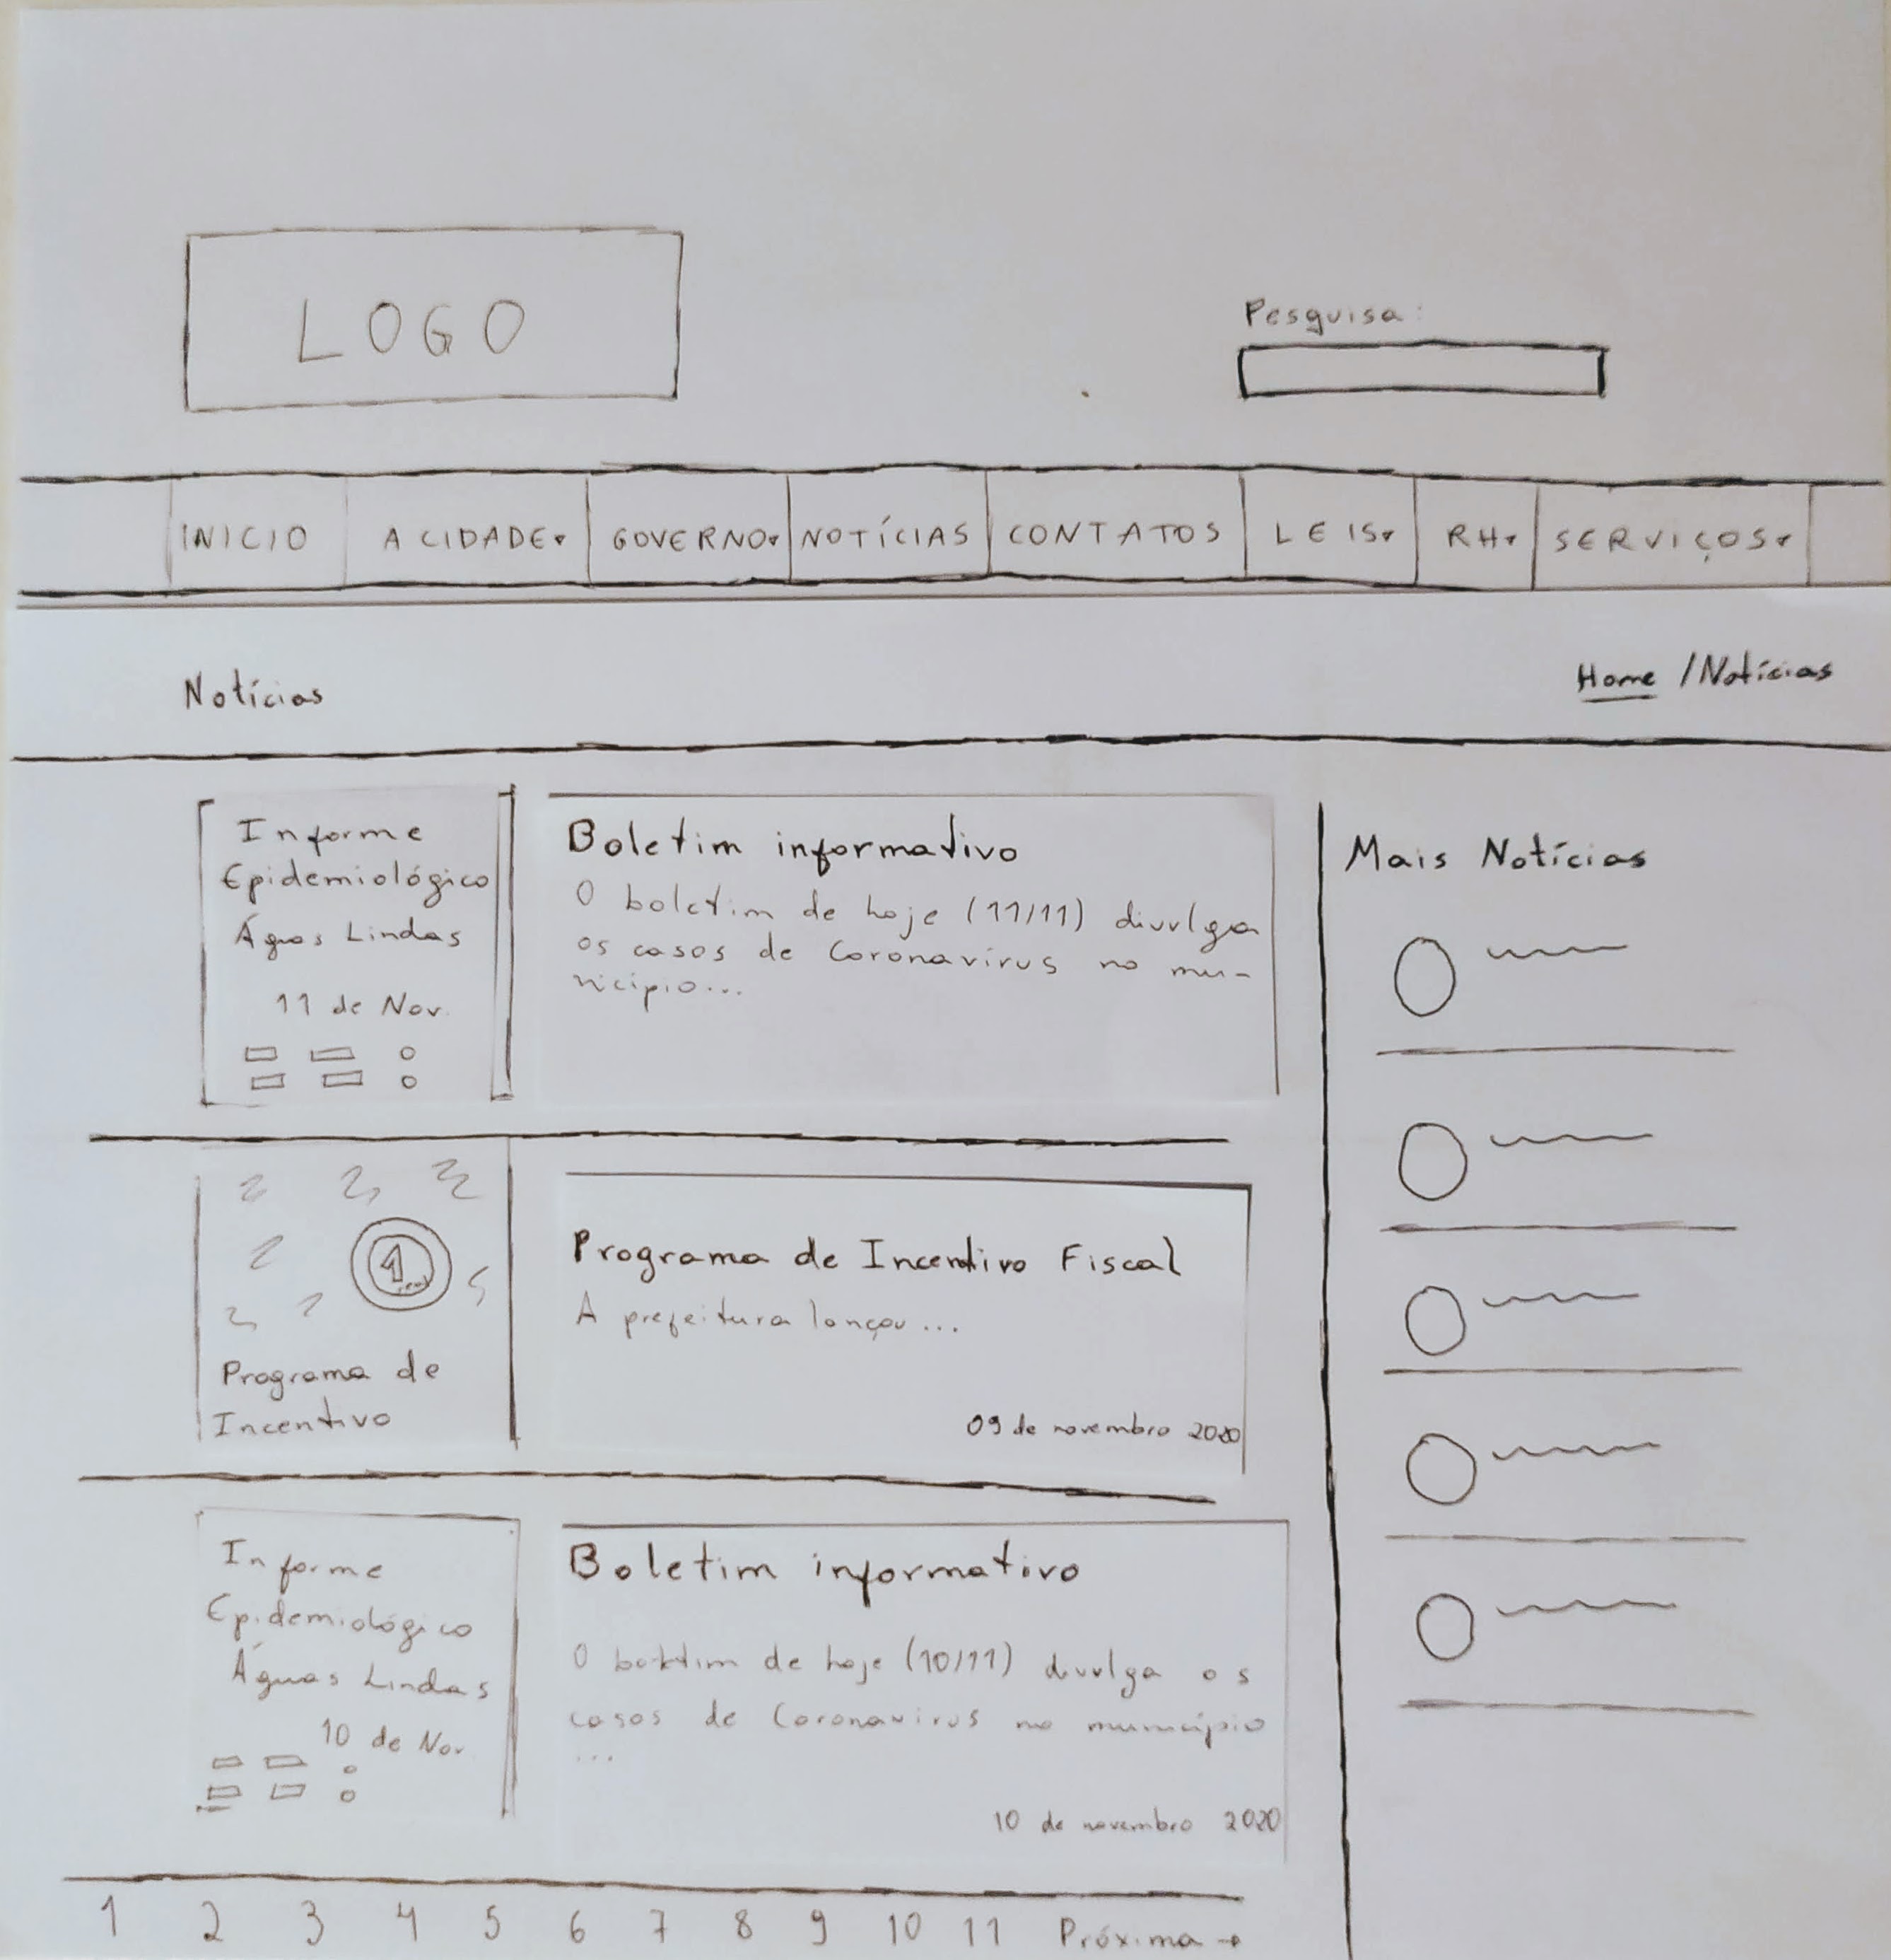 LOGO
Pesquisa:
INICIO
A CIDADE
GOVERNO
NOTÍCIAS
CONTATOS
LEIS
RH
SERVIÇOS
Notícias
Home / Notícias
Informe
Epidemiológico
Águas Lindas
11 de Nov.
Boletim informativo
O boletim de hoje (11/11) divulga
os casos de Coronavírus no mu-
nicípio...
Mais Notícias
1
Programa de
Incentivo
Programa de Incentivo Fiscal
A prefeitura lançou ...
09 de novembro 2020
Informe
Epidemiológico
Águas Lindas
10 de Nov.
Boletim informativo
O boletim de hoje (10/11) divulga os
casos de Coronavirus no município
...
10 de novembro 2020
1 2 3 4 5 6 7 8 9 10 11 Próxima →